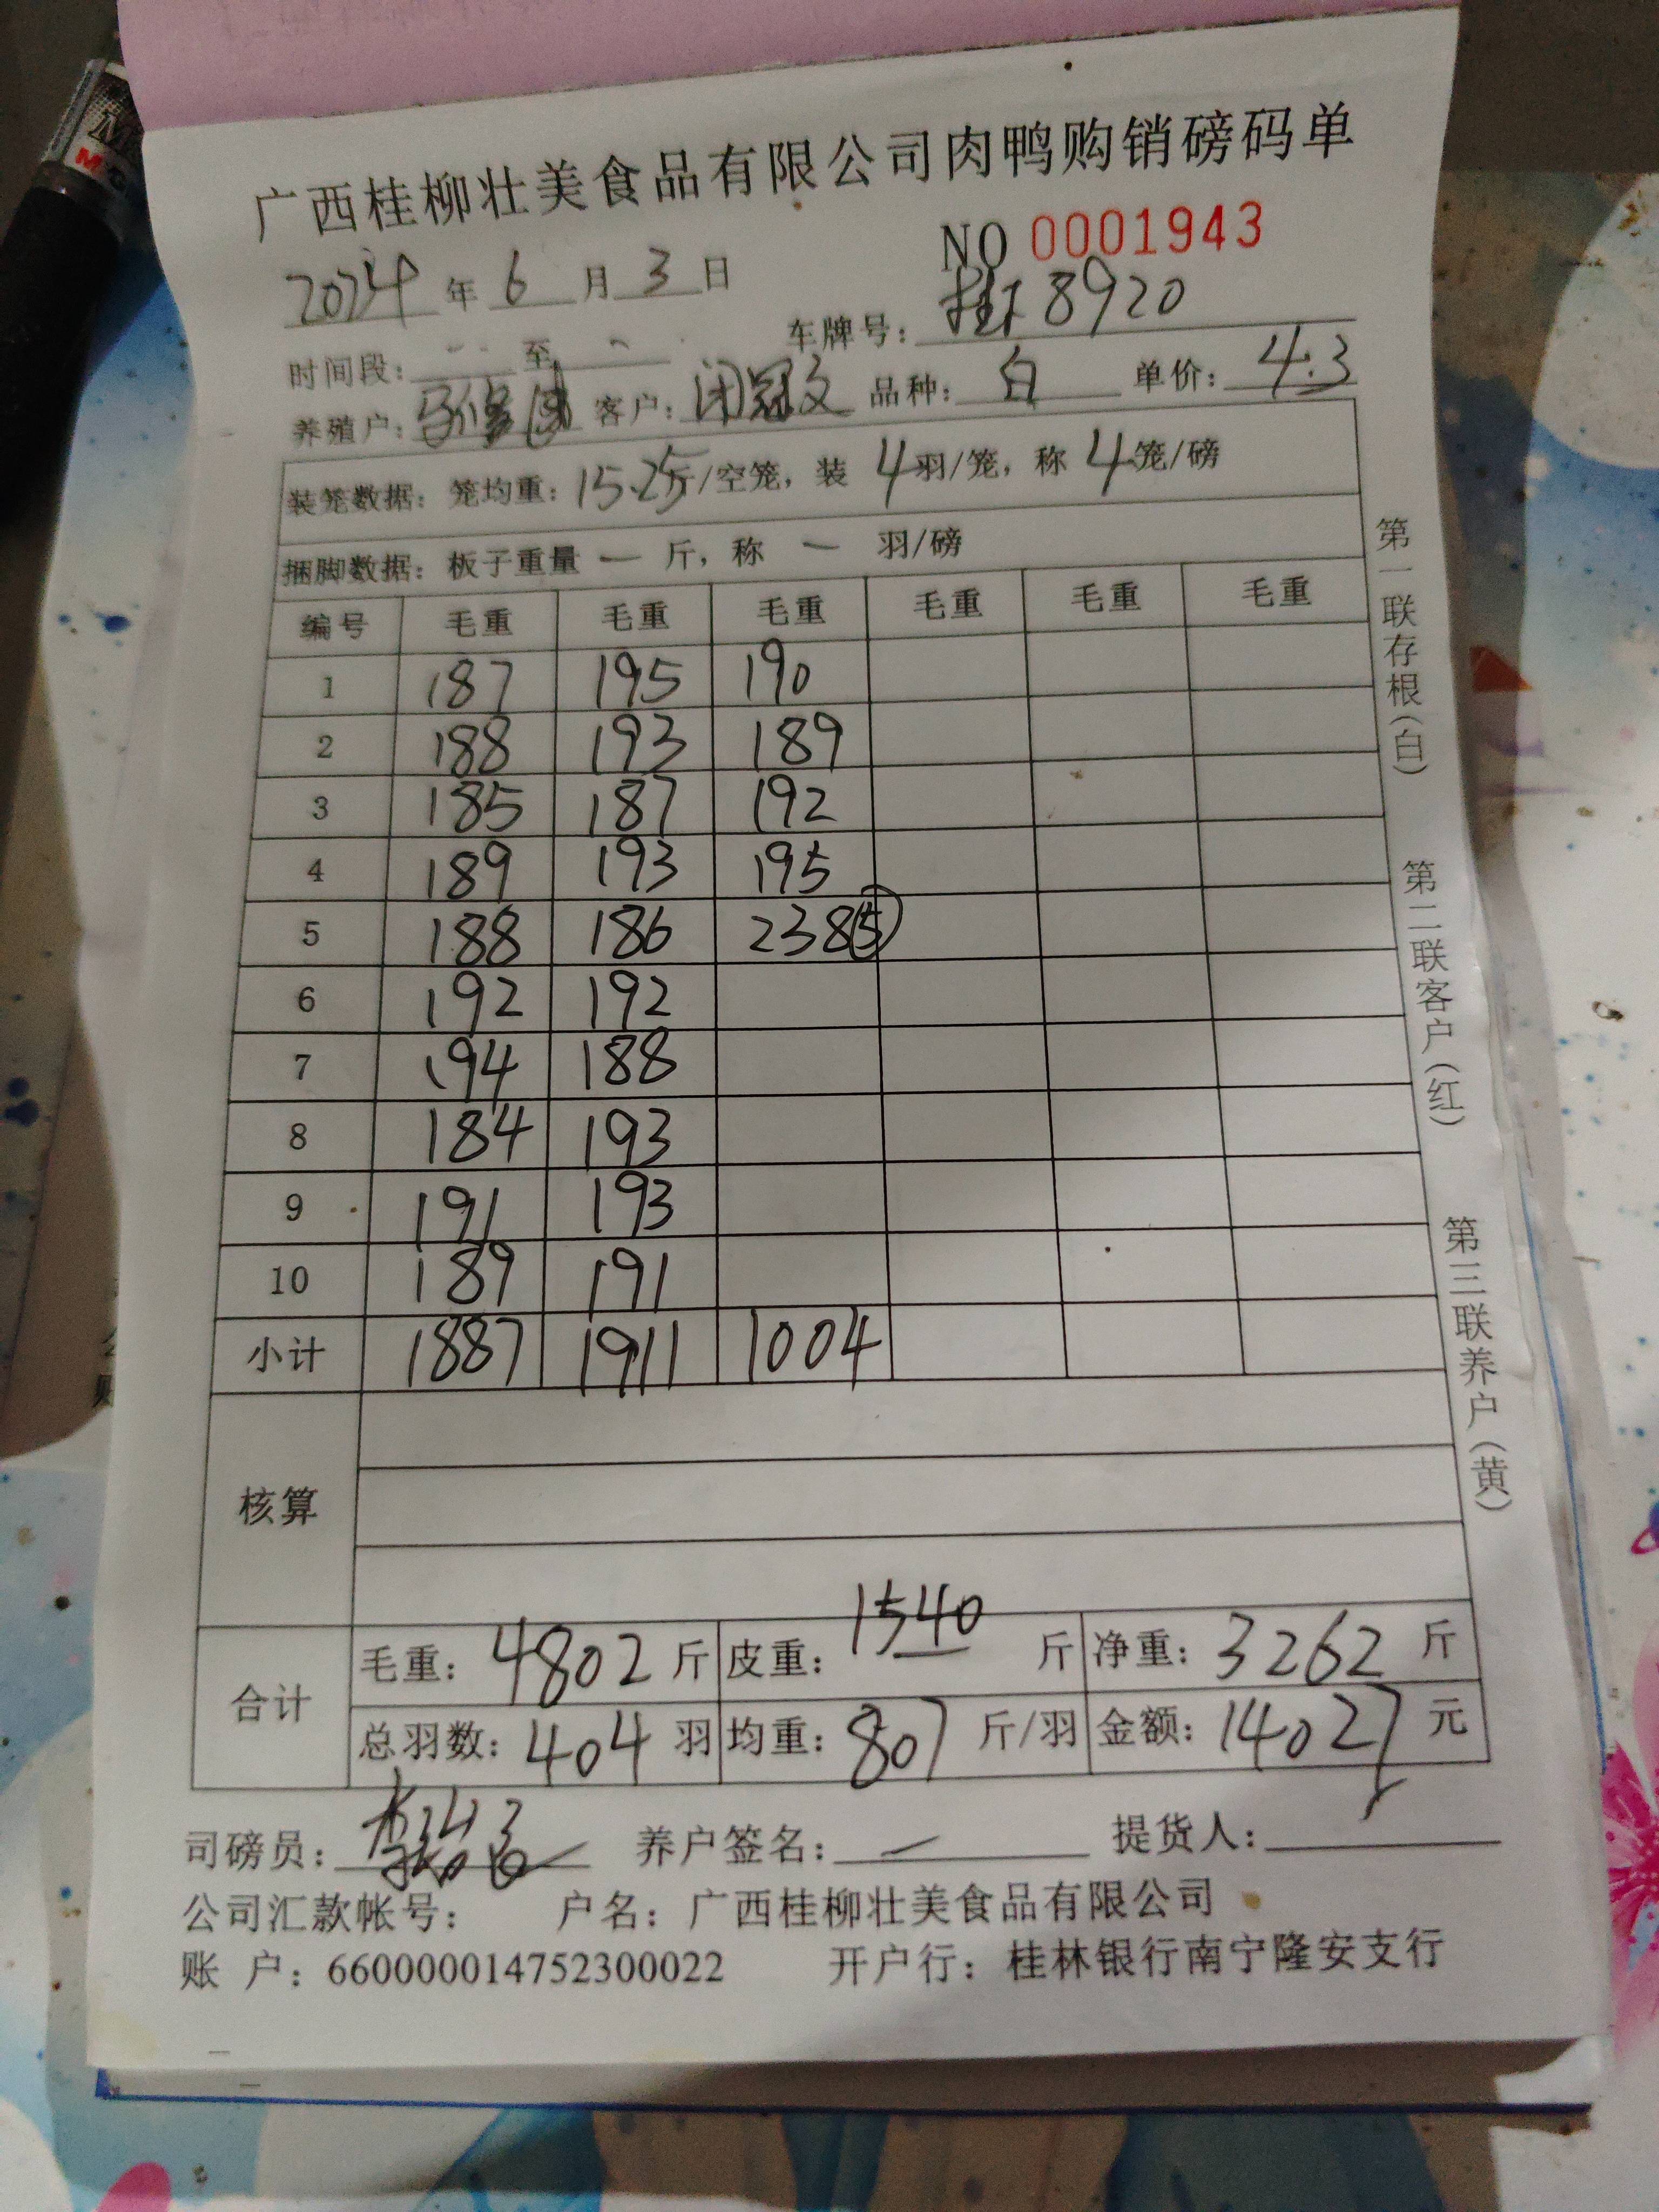 广西桂柳壮美食品有限公司肉鸭购销磅码单
NO 0001943
2024 年 6 月 3 日
时间段: 至 车牌号: 8920
养殖户: 客户: 闭冠文 品种: 白 单价: 4.3
装笼数据: 笼均重: 15.25斤/空笼, 装 4 羽/笼, 称 4 笼/磅
捆脚数据: 板子重量 一 斤, 称 一 羽/磅
编号 毛重 毛重 毛重 毛重 毛重 毛重
1 187 195 190
2 188 193 189
3 185 187 192
4 189 193 195
5 188 186 238⑤
6 192 192
7 194 188
8 184 193
9 191 193
10 189 191
小计 1887 1911 1004
核算
合计 毛重: 4802 斤 皮重: 1540 斤 净重: 3262 斤
总羽数: 404 羽 均重: 807 斤/羽 金额: 14027 元
司磅员: 养户签名: 提货人:
公司汇款帐号: 户名: 广西桂柳壮美食品有限公司
账 户: 660000014752300022 开户行: 桂林银行南宁隆安支行
第一联存根(白) 第二联客户(红) 第三联养户(黄)